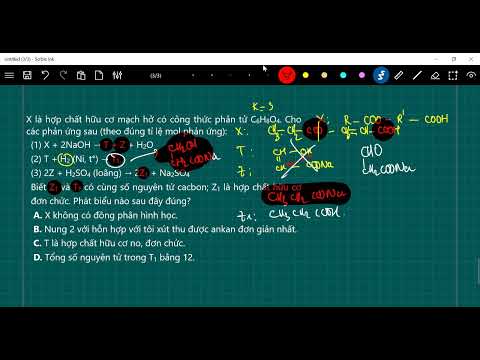 untitled (3/3) - ScrBle Ink
(3/3)
K = 3
X là hợp chất hữu cơ mạch hở có công thức phân tử C₆H₈O₄. Cho
các phản ứng sau (theo đúng tỉ lệ mol phản ứng):
(1) X + 2NaOH → T + Z + H₂O
(2) T + H₂ (Ni, t°) → T₁
(3) 2Z + H₂SO₄ (loãng) → 2Z₁ + Na₂SO₄
Biết Z₁ và T₁ có cùng số nguyên tử cacbon; Z₁ là hợp chất hữu cơ
đơn chức. Phát biểu nào sau đây đúng?
A. X không có đồng phân hình học.
B. Nung Z với hỗn hợp với tôi xút thu được ankan đơn giản nhất.
C. T là hợp chất hữu cơ no, đơn chức.
D. Tổng số nguyên tử trong T₁ bằng 12.
Y: R - COO - R' - COOH
X: CH₃ CH₂
T: CH - OH
CH - COONa
CHO
CH₂ COONa
CH₂OH
CH₂ COONa
CH₃ CH₂ COONa
Z₁: CH₃ CH₂ COOH.